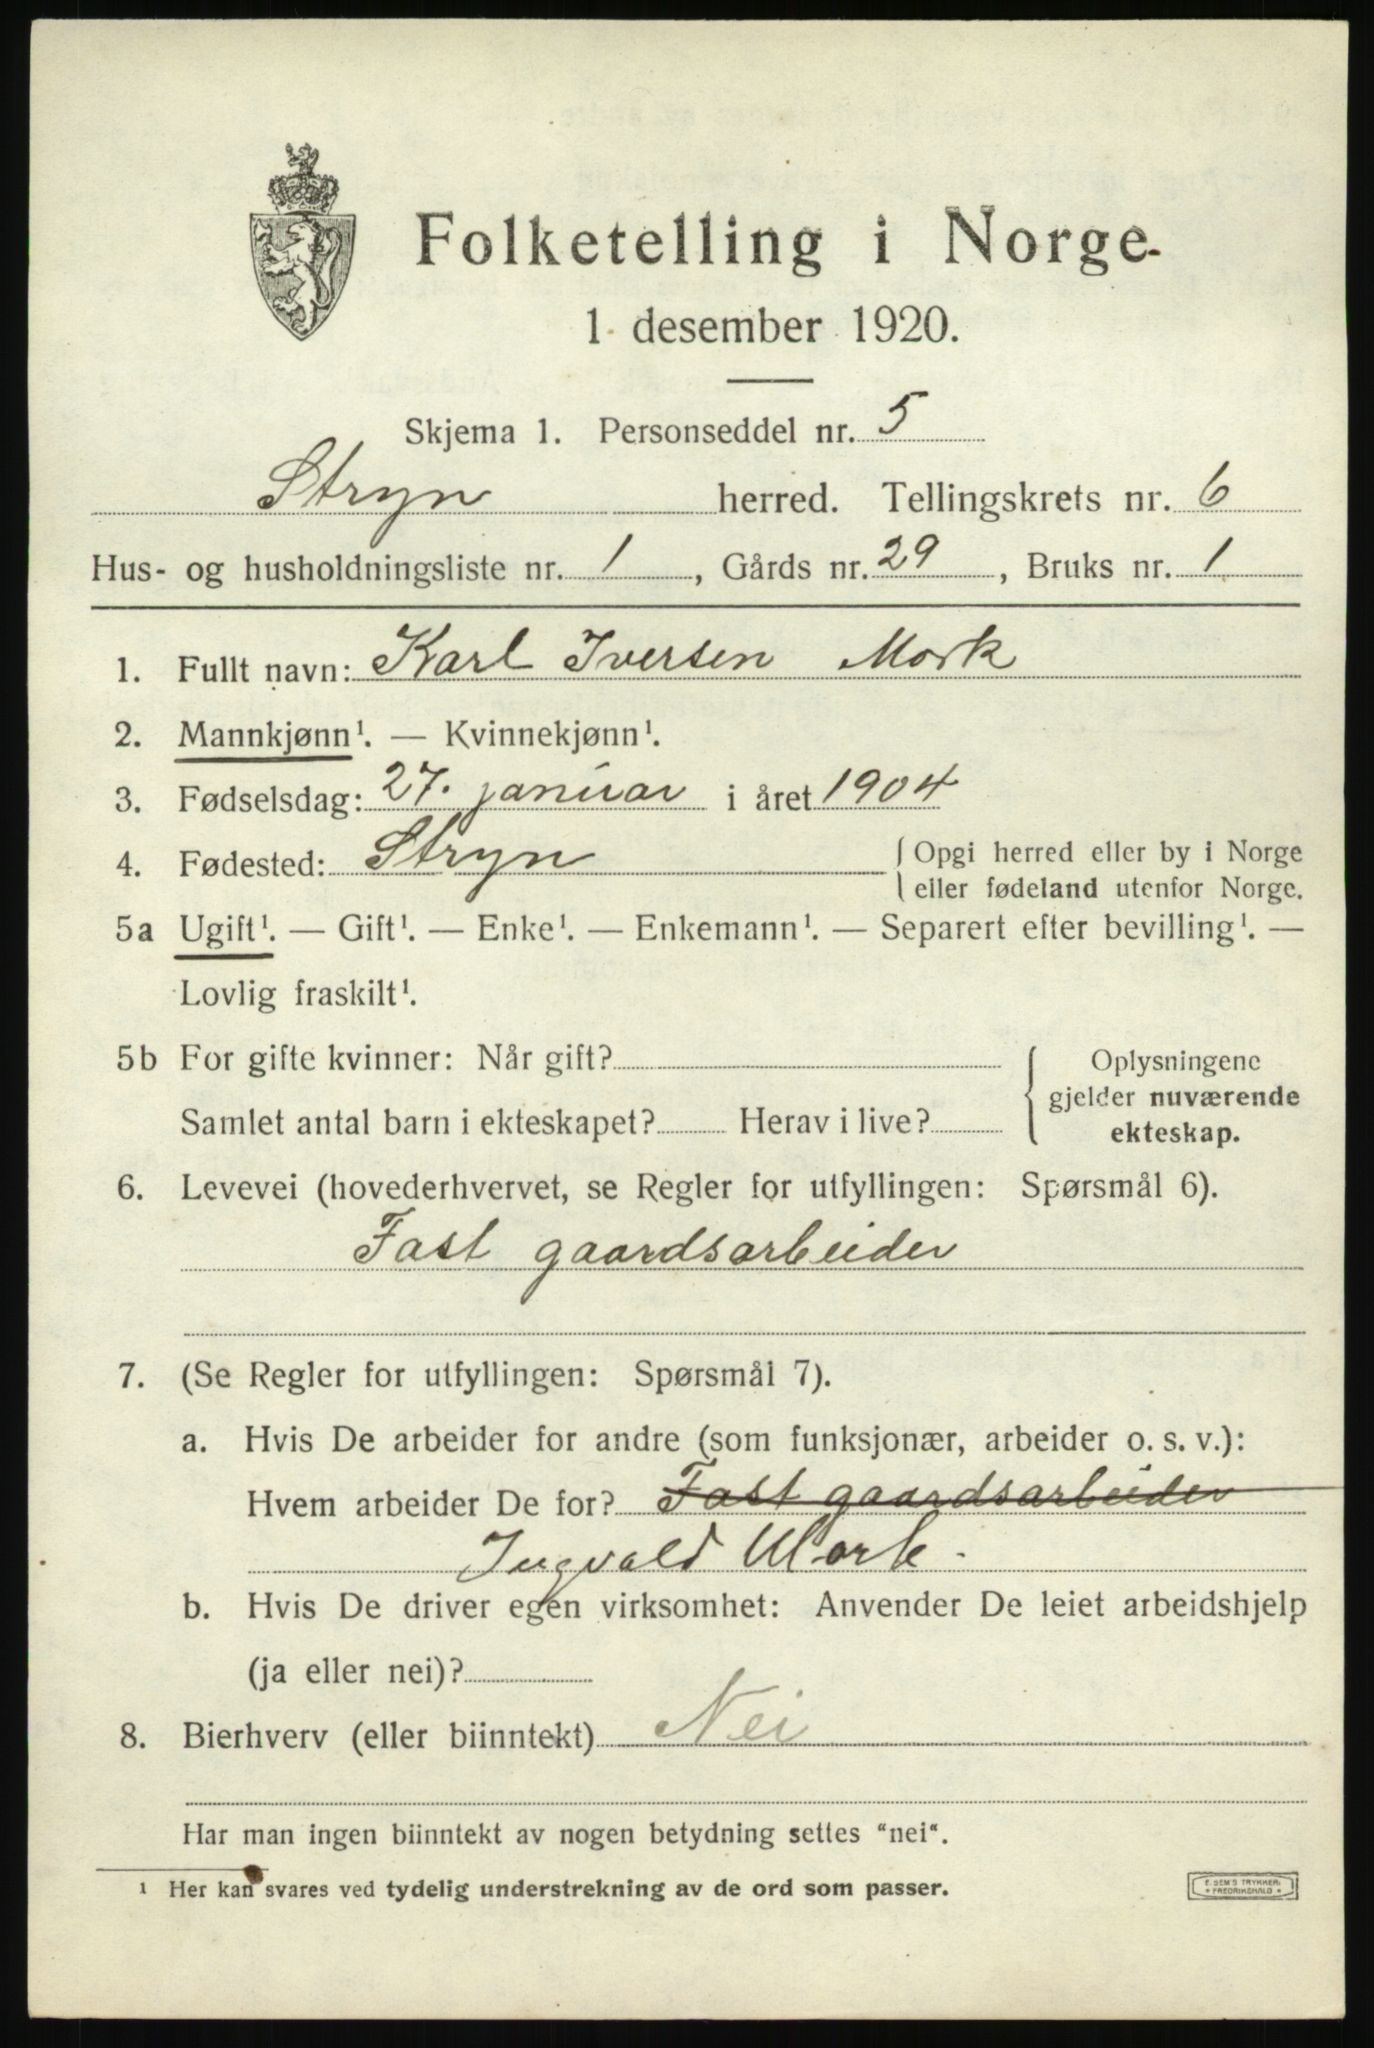 Folketelling i Norge
1 desember 1920.
Skjema 1. Personseddel nr. 5
Stryn herred. Tellingskrets nr. 6
Hus- og husholdningsliste nr. 1, Gårds nr. 29, Bruks nr. 1
1. Fullt navn: Karl Iversen Mork
2. Mannkjønn¹. — Kvinnekjønn¹.
3. Fødselsdag: 27. januar i året 1904
4. Fødested: Stryn { Opgi herred eller by i Norge
eller fødeland utenfor Norge.
5a Ugift¹. — Gift¹. — Enke¹. — Enkemann¹. — Separert efter bevilling¹. —
Lovlig fraskilt¹.
5b For gifte kvinner: Når gift?
Samlet antal barn i ekteskapet? Herav i live?
{ Oplysningene
gjelder nuværende
ekteskap.
6. Levevei (hovederhvervet, se Regler for utfyllingen: Spørsmål 6).
Fast gaardsarbeider
7. (Se Regler for utfyllingen: Spørsmål 7).
a. Hvis De arbeider for andre (som funksjonær, arbeider o. s. v.):
Hvem arbeider De for? Fast gaardsarbeider
Ingvald Mork.
b. Hvis De driver egen virksomhet: Anvender De leiet arbeidshjelp
(ja eller nei)?
8. Bierhverv (eller biinntekt) Nei
Har man ingen biinntekt av nogen betydning settes "nei".
¹ Her kan svares ved tydelig understrekning av de ord som passer.
E. SEM'S TRYKKERI
FREDRIKSHALD